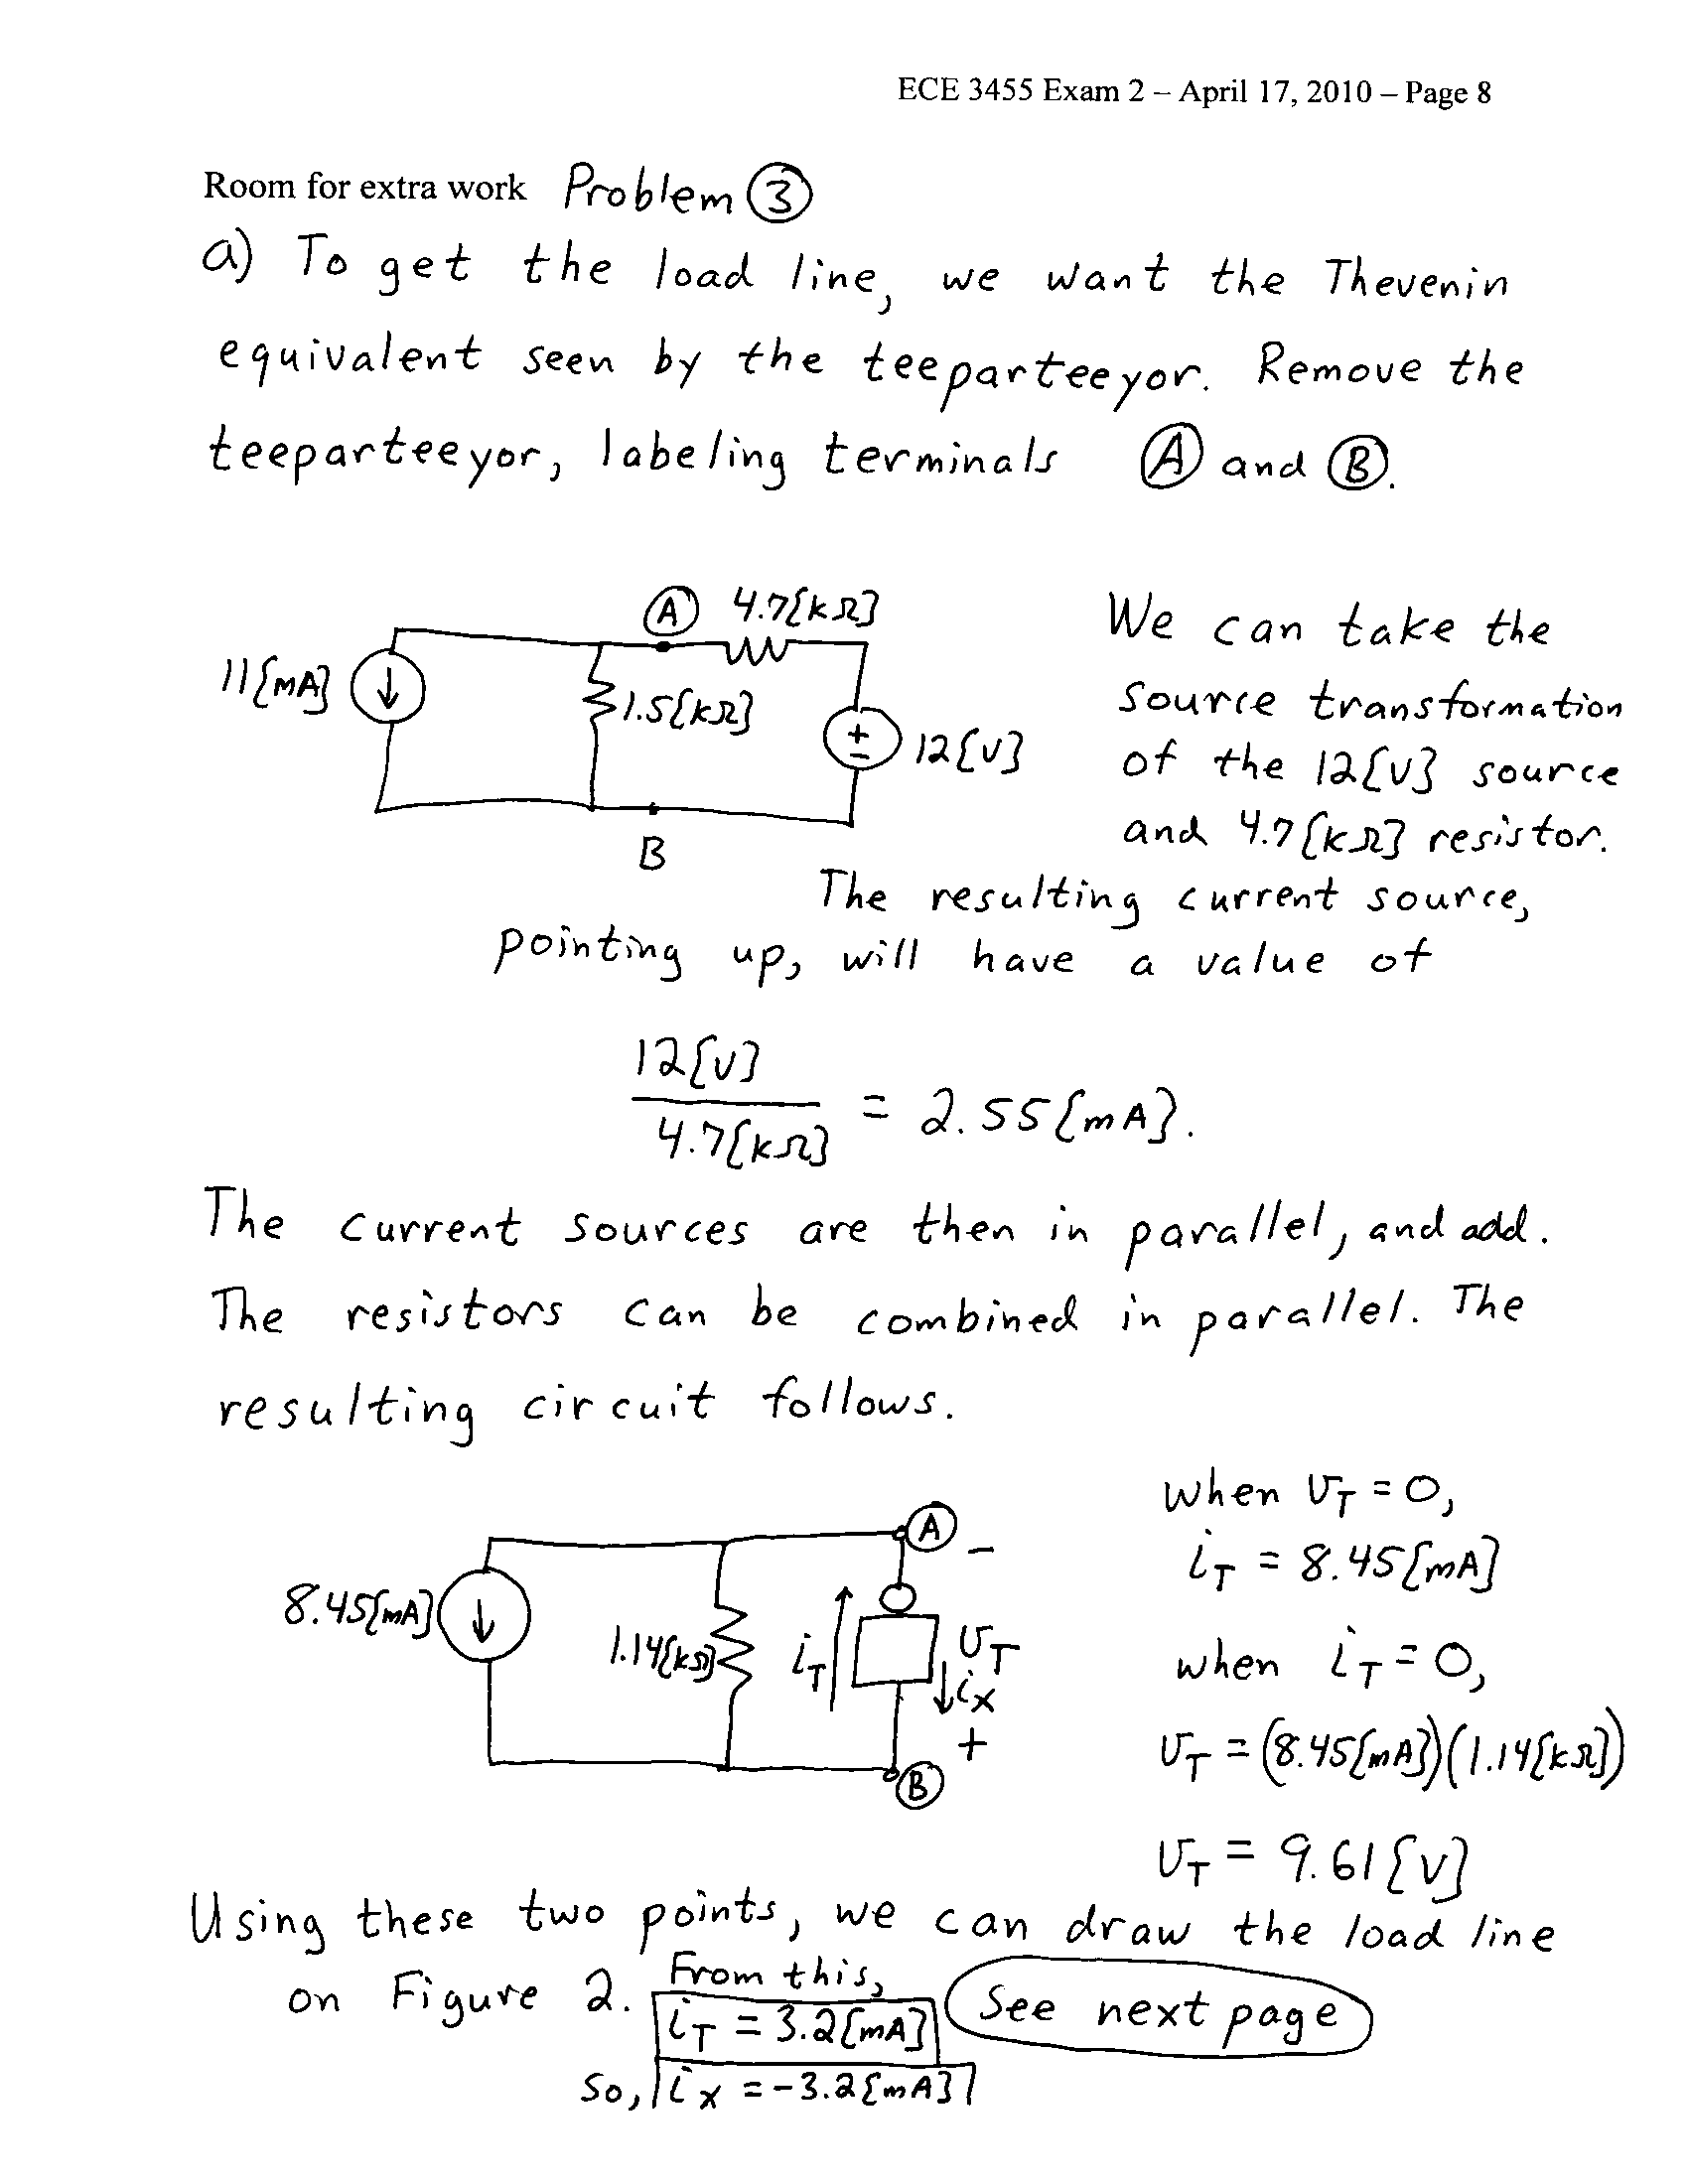 ECE 3455 Exam 2 – April 17, 2010 – Page 8
Room for extra work Problem ③
a) To get the load line, we want the Thevenin
equivalent seen by the teeparteeyor. Remove the
teeparteeyor, labeling terminals Ⓐ and Ⓑ.
Ⓐ 4.7[kΩ]
11[mA] ↓
1.5[kΩ]
+
-
12[V]
B
We can take the
source transformation
of the 12[V] source
and 4.7[kΩ] resistor.
The resulting current source,
pointing up, will have a value of
12[V]
4.7[kΩ]
= 2.55[mA].
The current sources are then in parallel, and add.
The resistors can be combined in parallel. The
resulting circuit follows.
Ⓐ
-
8.45[mA] ↓
1.14[kΩ]
i_T
v_T
i_X
+
Ⓑ
when v_T = 0,
i_T = 8.45[mA]
when i_T = 0,
v_T = (8.45[mA])(1.14[kΩ])
v_T = 9.61[V]
Using these two points, we can draw the load line
on Figure 2. From this,
i_T = 3.2[mA]
See next page
So, i_X = -3.2[mA]